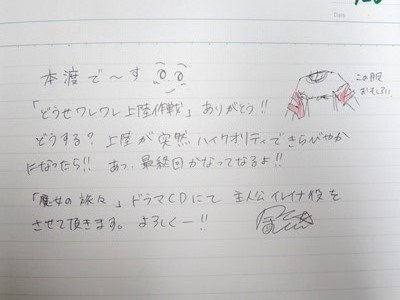 本渡で〜す
「どうせワレワレ上陸作戦」ありがとう!!
この服
おもしろい
どうする? 上陸が突然ハイクオリティできらびやか
になったら!! あっ、最終回かなってなるよ!!
「魔女の旅々」ドラマCDにて 主人公イレイナ役を
させて頂きます。よろしくー!!
Date